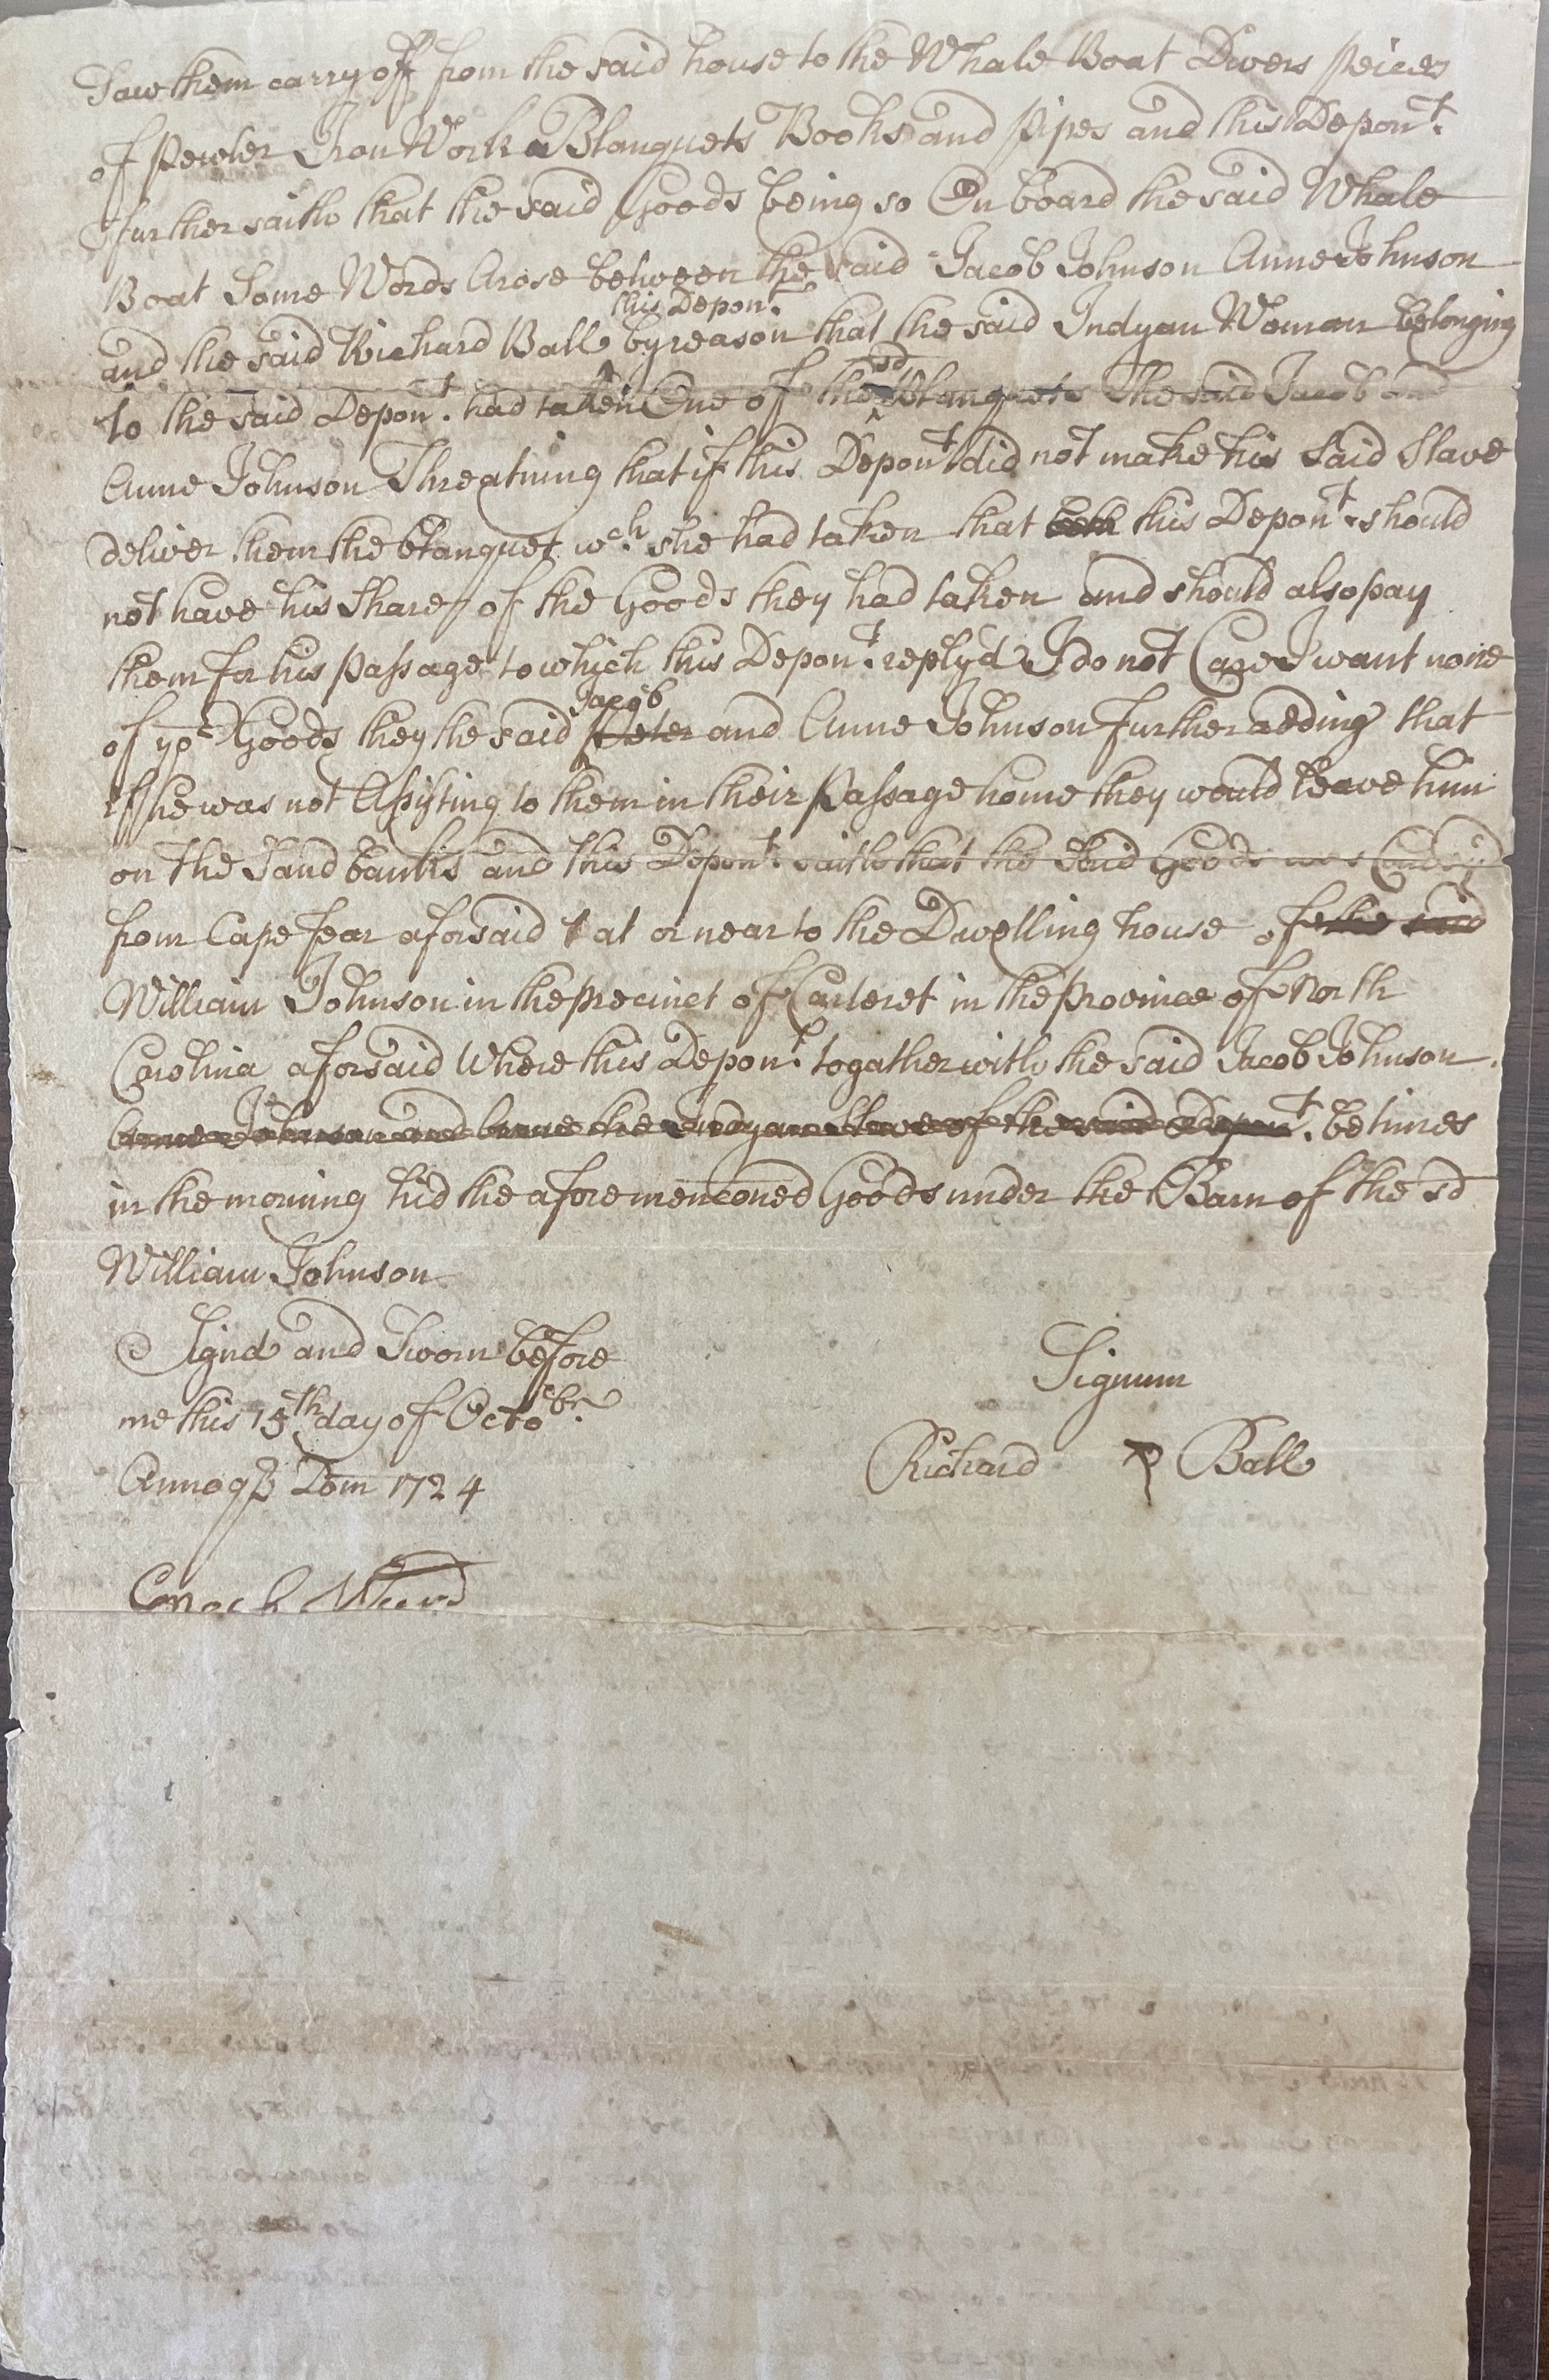 Saw them carry off from the said house to the Whale Boat Divers peices
of pewter Iron Work a Blanquets Books and pipes and this Depont.
further saith that the said Goods being so On board the said Whale
Boat Some Words Arose between the said Jacob Johnson Anne Johnson
this Depont.
and the said Richard Ball by reason that the said Indyan Woman belonging
sd
to the said Depont. had taken One of the Blanquets the said Jacob and
Anne Johnson Threatning that if this Depont did not make his Said Slave
deliver them the blanquet wch she had taken that this Depont. should
not have his Share of the Goods they had taken and should also pay
them for his passage to which this Depont. reply'd I do not Care I want none
Jacob
of yor Goods they the said Peter and Anne Johnson further adding that
if he was not Assisting to them in their passage home they would leave him
on the Sand banks and this Depont. saith that the Said Goods were Convey'd
from Cape fear aforsaid at or near to the Dwelling house of the said
William Johnson in the precinct of Carteret in the province of North
Carolina aforsaid Where this Depont. togather with the said Jacob Johnson
Anne Johnson and the Indyan Slave of the said Depont. betimes
in the morning hid the aforemenconed Goods under the Barn of the sd
William Johnson
Signd and Sworn before
me this 15th day of Octobr.
Annoqß Dom 1724
Signum
Richard Ball
Enoch Ward